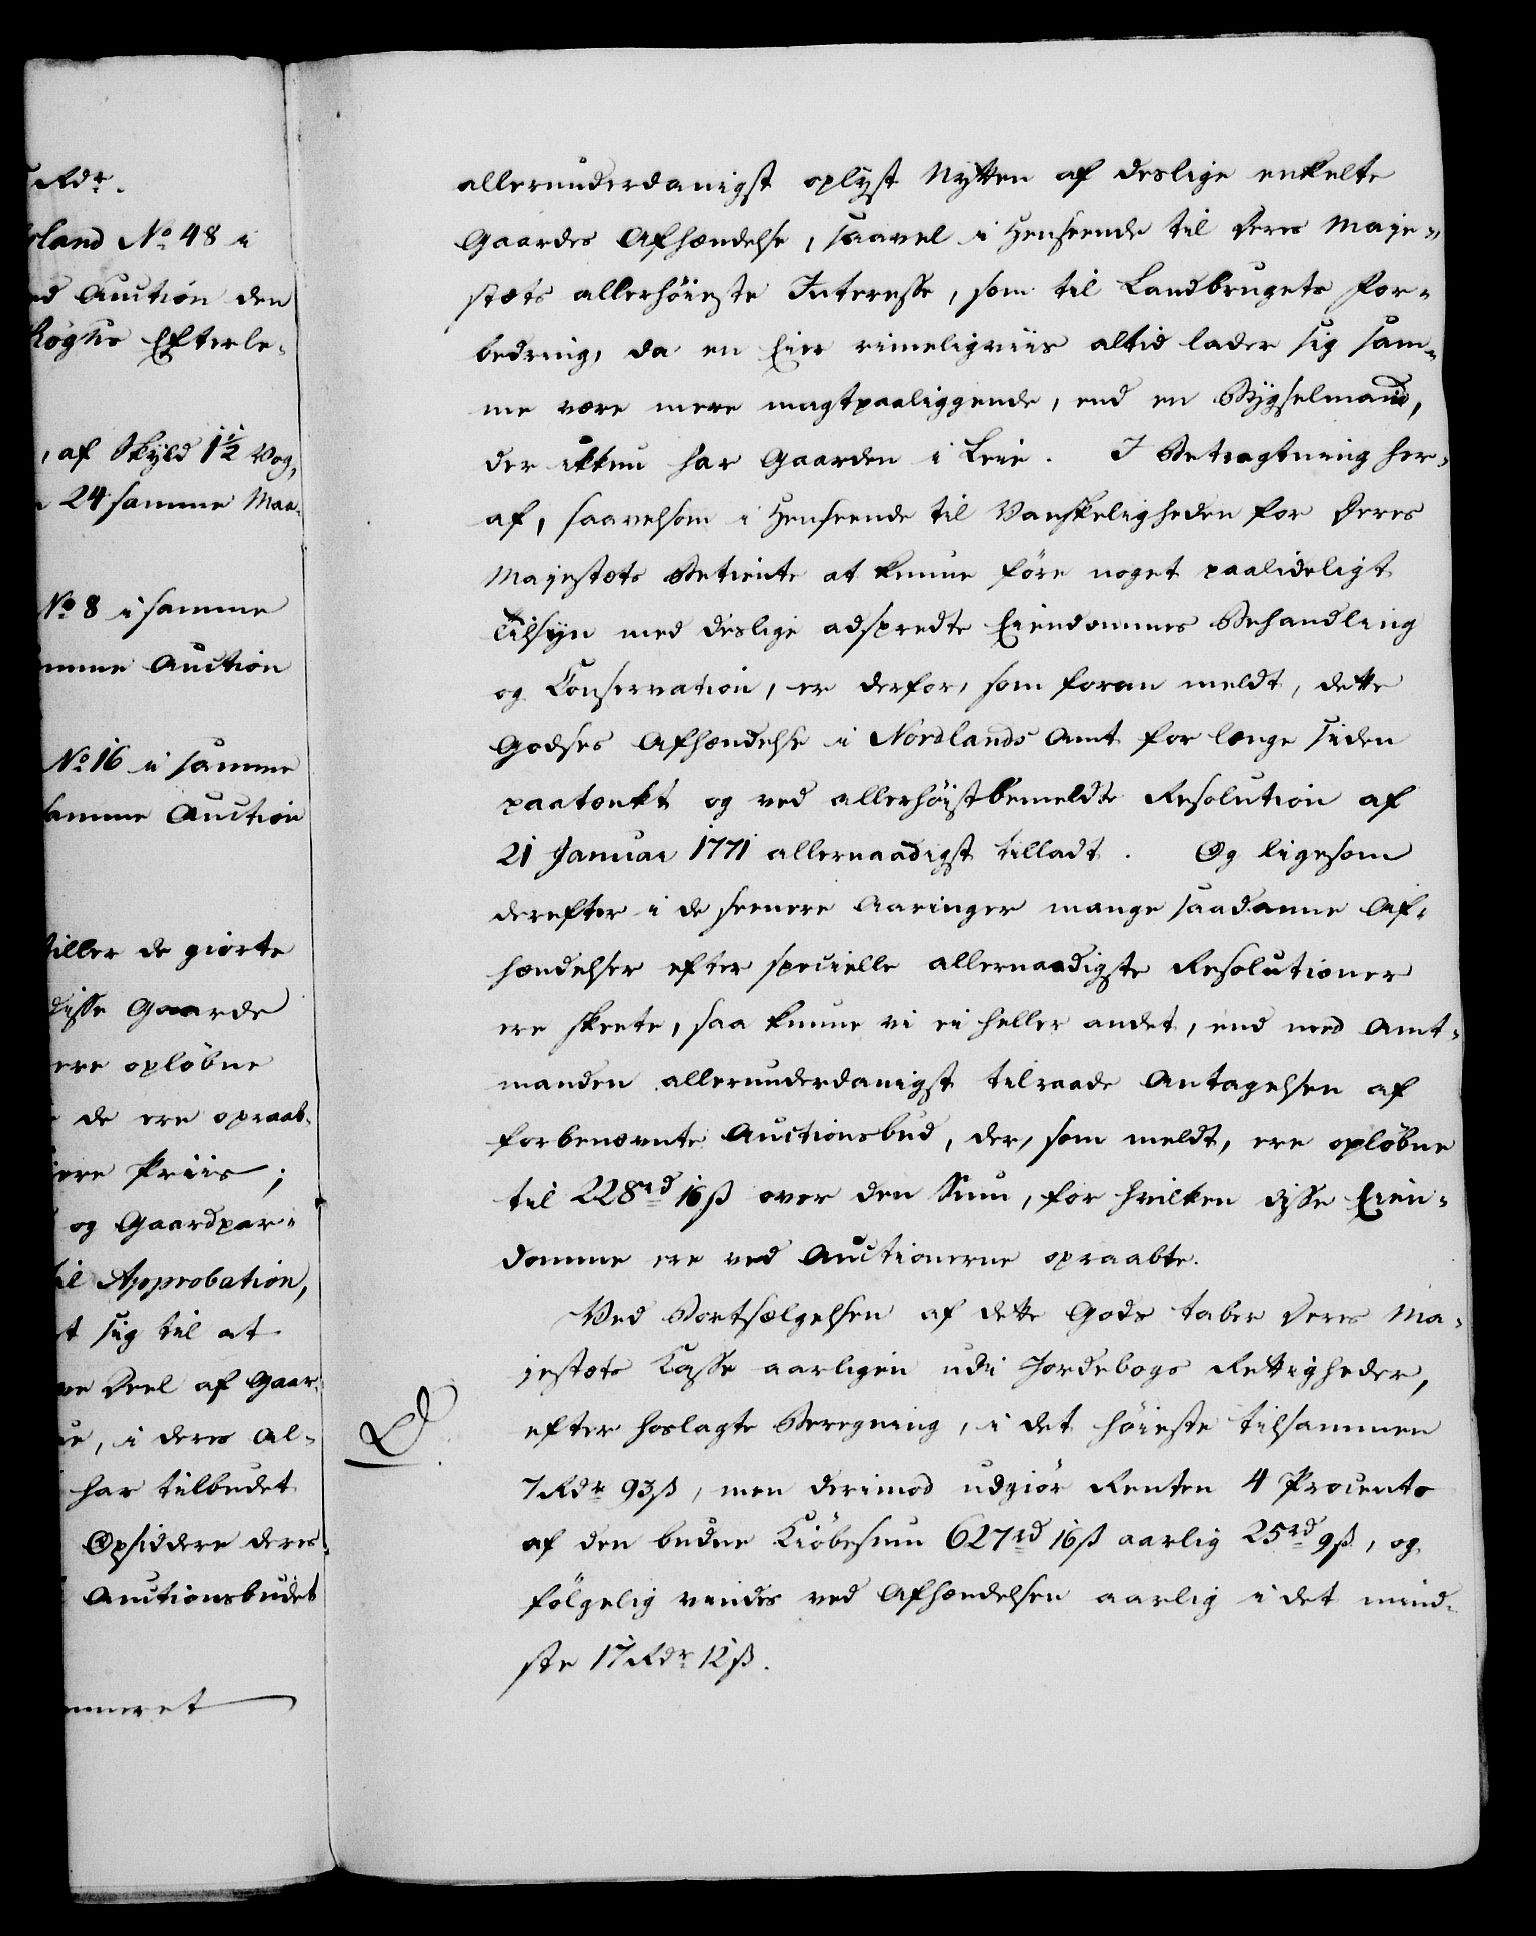 Rdr.
sland No 48 i
ed Auction den
Efterle-
, af Skyld 1½ Vog,
24 samme Maa-
No 8 i samme
mme Auction
No 16 i samme
samme Auction
tiller de giorte
disse Gaarde
ere opløbne
de ere opraab-
ere Priis;
og Gaardpar-
til Approbation,
st sig til at
ve Deel af Gaar-
ne, i deres Al-
har tilbudet
Opsiddere deres
Auctionsbudet
mmeret
allerunderdanigst oplyst Nytten af deslige enkelte
Gaardes Afhændelse, saavel i Henseende til Deres Maje-
stæts allerhöieste Interesse, som til Landbrugets For-
bedring, da en Eier rimeligviis altid lader sig sam-
me være mere magtpaaliggende, end en Bygselmand,
der ikkun har Gaarden i Leie. I Betragtning her-
af, saavelsom i Henseende til Vanskeligheden for Deres
Majestæts Betiente at kunne före noget paalideligt
Tilsyn med deslige adspredte Eiendommes Behandling
og Conservation, er derfor, som foran meldt, dette
Godses Afhændelse i Nordlands Amt for længe siden
paatænkt og ved allerhöistbemeldte Resolution af
21 Januar 1771 allernaadigst tilladt. Og ligesom
derefter i de seenere Aaringer mange saadanne Af-
hændelser efter specielle allernaadigste Resolutioner
ere skeete, saa kunne vi ei heller andet, end med Amt-
manden allerunderdanigst tilraade Antagelsen af
forbenævnte Auctionsbud, der, som meldt, ere oplöbne
til 228rd 16ß over den Sum, for hvilken disse Eien-
domme ere ved Auctionerne opraabte.
Ved Bortsælgelsen af dette Gods taber Deres Ma-
jestæts Casse aarligen udi Jordebogs Rettigheder,
efter hoslagte Beregning, i det höieste tilsammen
7Rdr 93ß, men derimod udgiör Renten 4 Procento
af den budne Kiöbesum 627rd 16ß aarlig 25rd 9ß, og
fölgelig vindes ved Afhændelsen aarlig i det mind-
ste 17Rdr 12ß.